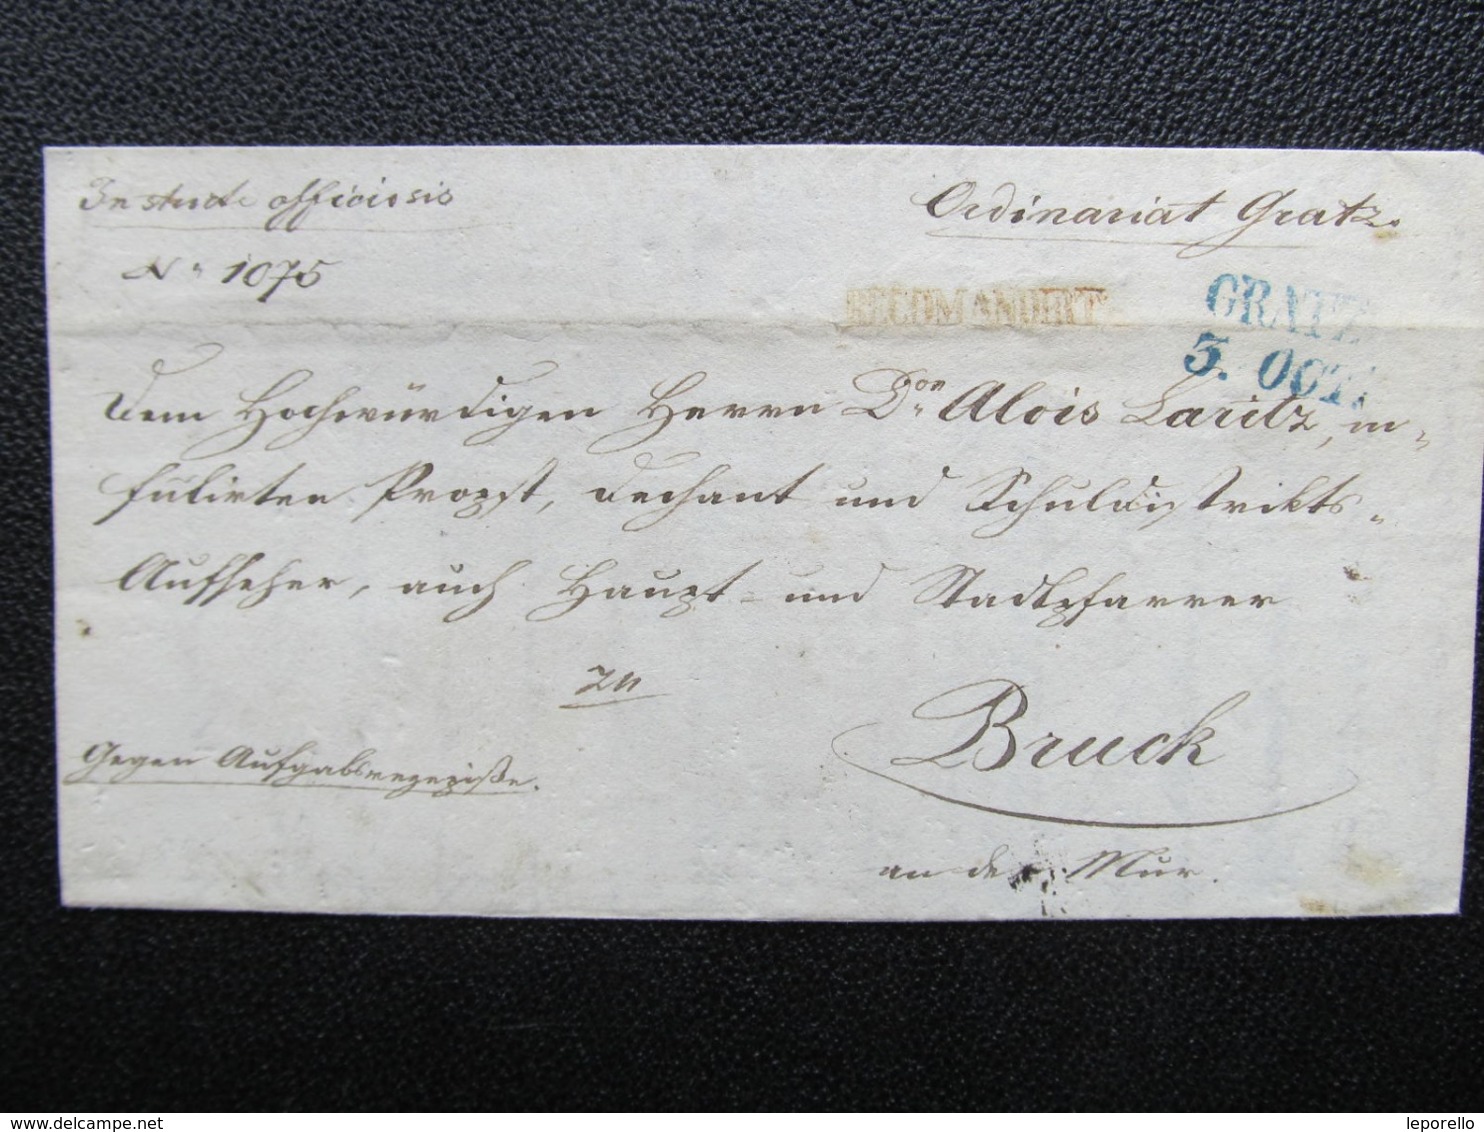 In statu officiosis
Ordinariat Gratz.
N" 1075
RECOMANDIRT
GRATZ
3. OCT.
Dem Hochwürdigen Herrn Don Alois Laritz, in-
fulirten Propst, Dechant und Schuldistrikts-
Aufseher, auch Haupt- und Stadtpfarrer
zu
Bruck
Gegen Aufgabsrezepisse.
an der Mur.
delcampe.net
leporello